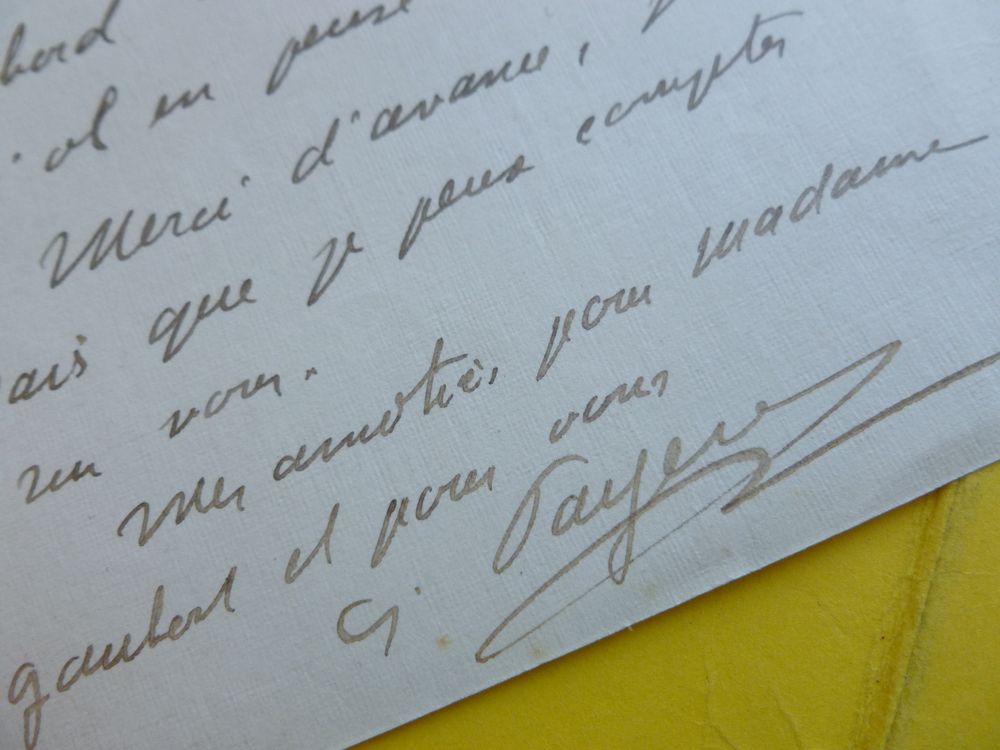 bord
ol en pense
Merci d'avance,
ais que je peux compter
sur vous.
Mes amitiés, pour Madame
gaubert et pour vous
G. Payen